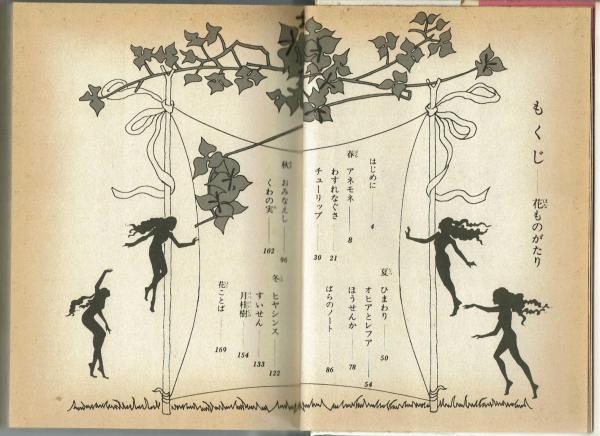 もくじ――花ものがたり
はじめに 4
春 アネモネ 8
わすれなぐさ 21
チューリップ 30
夏 ひまわり 50
オヒアとレフア 54
ほうせんか 78
ばらのノート 86
秋 おみなえし 96
くわの実 102
冬 ヒヤシンス 122
すいせん 133
月桂樹 154
花ことば 169